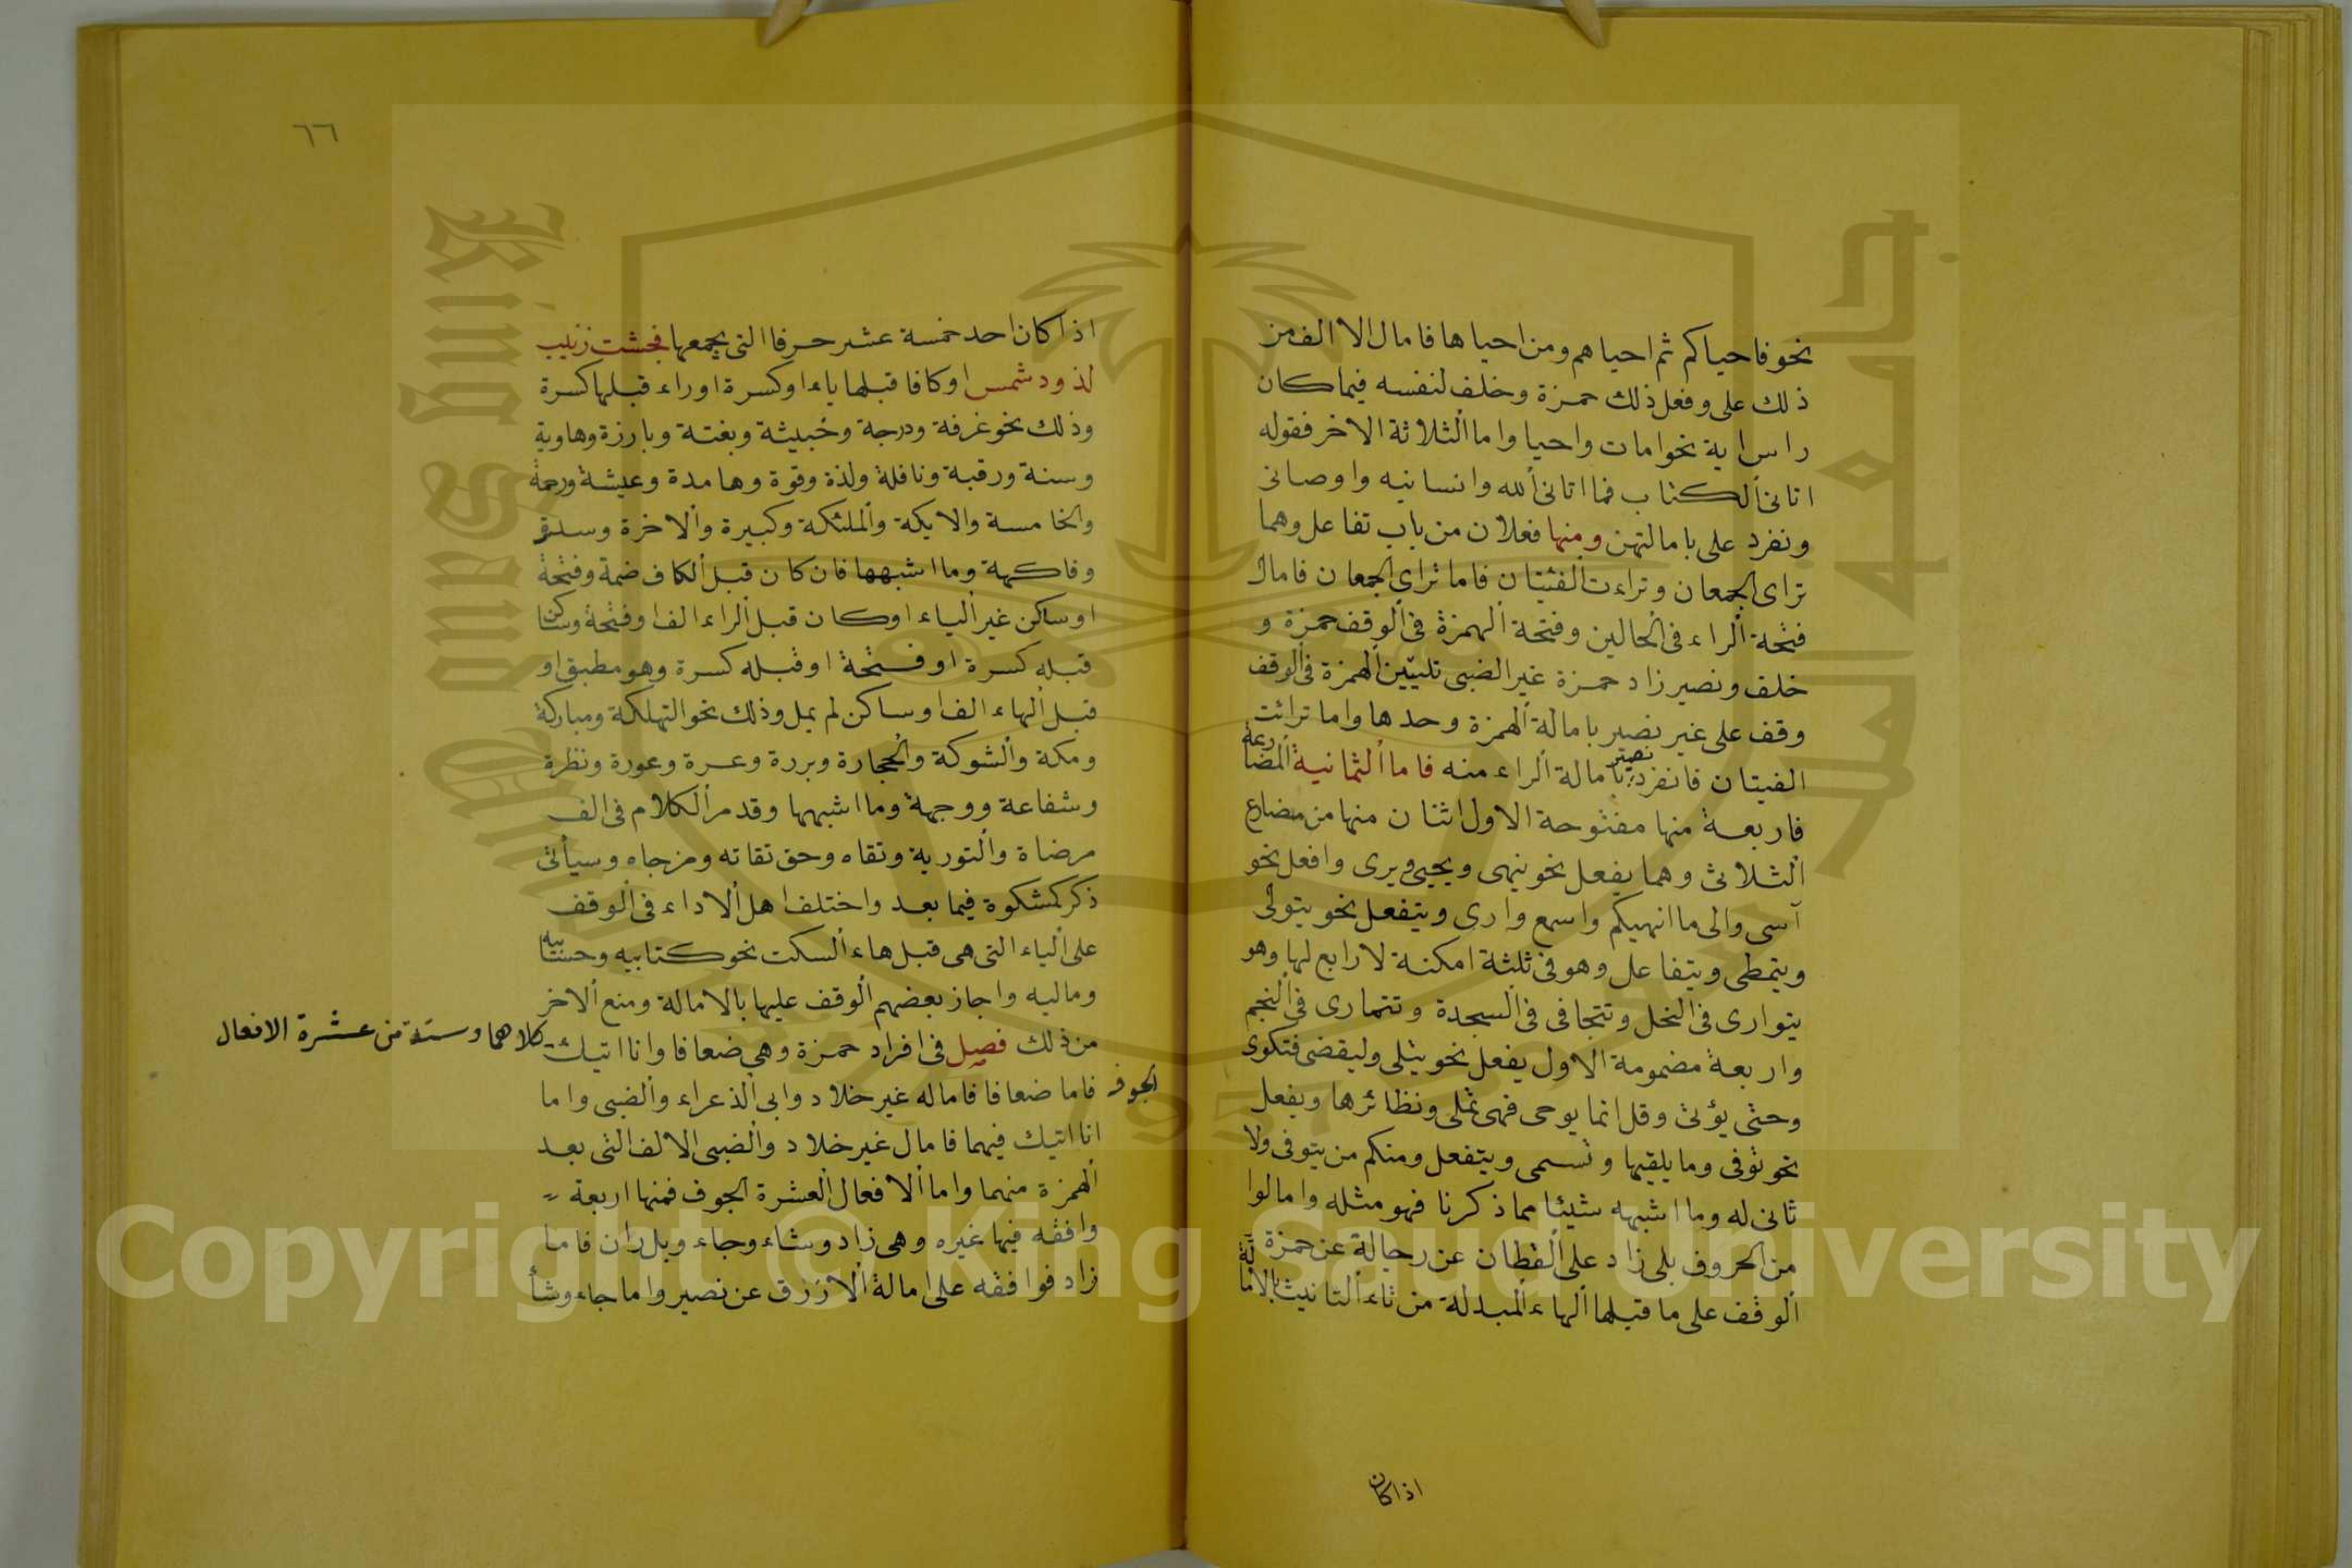 نحو فاحياكم ثم احياهم ومن احياها فامال الا الف من
ذلك على وفعل ذلك حمزة وخلف لنفسه فيما كان
راس اية نحو امات واحيا واما الثلاثة الاخر فقوله
اتانى الكتاب فما اتانى الله وانسانيه واوصانى
ونفرد على بامالتهن ومنها فعلان من باب تفاعل وهما
تراى الجمعان وتراءت الفئتان فاما تراى الجمعان فامال
فتحة الراء فى الحالين وفتحة الهمزة فى الوقف حمزة و
خلف ونصير زاد حمزة غير الضبى تليين الهمزة فى الوقف
وقف على غير نصير بامالة الهمزة وحدها واما ترائت
الفيتان فانفرد نصير بامالة الراء منه فاما الثمانية المضارعة
فاربعة منها مفتوحة الاول اثنان منها من مضارع
الثلاثى وهما يفعل نحو ينهى ويحيى ويرى وافعل نحو
آسى والى ما انهيكم واسمع وارى ويتفعل نحو يتولى
ويتمطى ويتفاعل وهو فى ثلثة امكنة لا رابع لها وهو
يتوارى فى النحل وتتجافى فى السجدة وتتمارى فى النجم
واربعة مضمومة الاول يفعل نحو يتلى وليقضى فتكوى
وحتى يؤتى وقل انما يوحى فهى تملى ونظائرها ويفعل
نحو توفى وما يلقيها وتسمى ويتفعل ومنكم من يتوفى ولا
ثانى له وما اشبهه شيئا مما ذكرنا فهو مثله وامالوا
من الحروف بلى زاد على القطان عن رجاله عن حمزة
الوقف على ما قبلها الهاء المبدلة من تاء التانيث بالامالة
اذا كان
٦٦
اذا كان احد خمسة عشر حرفا التى يجمعها فجثت زينب
لذود شمس او كافا قبلها ياء او كسرة او راء قبلها كسرة
وذلك نحو غرفة ودرجة وخبيثة وبغتة وبارزة وهاوية
وسنة ورقبة ونافلة ولذة وقوة وهامدة وعيشة ورحمة
والخامسة والايكة والملئكة وكبيرة والاخرة وسدرة
وفاكهة وما اشبهها فان كان قبل الكاف ضمة وفتحة
او ساكن غير الياء او كان قبل الراء الف او فتحة وساكنا
قبله كسرة او فتحة او قبله كسرة وهو مطبق او
قبل الهاء الف او ساكن لم يمل وذلك نحو التهلكة ومباركة
ومكة والشوكة والحجارة وبررة وعسرة وعورة ونظرة
وشفاعة ووجهة وما اشبهها وقد مر الكلام فى الف
مرضاة والتورية وتقاه وحق تقاته ومزجاه وسيأتى
ذكر كمشكوة فيما بعد واختلف اهل الاداء فى الوقف
على الياء التى هى قبل هاء السكت نحو كتابيه وحسابيه
وماليه واجاز بعضهم الوقف عليها بالامالة ومنع الاخر
من ذلك فصل فى افراد حمزة وهى ضعافا وانا اتيك
كلاهما وستة من عشرة الافعال
الجوف
فاما ضعافا فاماله غير خلاد وابى الذعراء والضبى واما
انا اتيك فيهما فامال غير خلاد والضبى الالف التى بعد
الهمزة منهما واما الافعال العشرة الجوف فمنها اربعة
وافقه فيها غيره وهى زاد وشاء وجاء وبل ران فاما
زاد فوافقه على امالة الازرق عن نصير واما جاء وشأ
جامعة الملك سعود
King Saud University
1957
Copyright © King Saud University